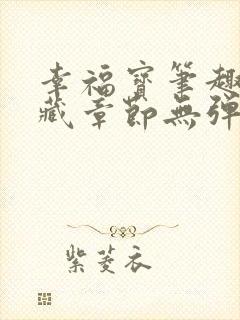 幸福寶筆趣
藏章節無彈
紫菱衣